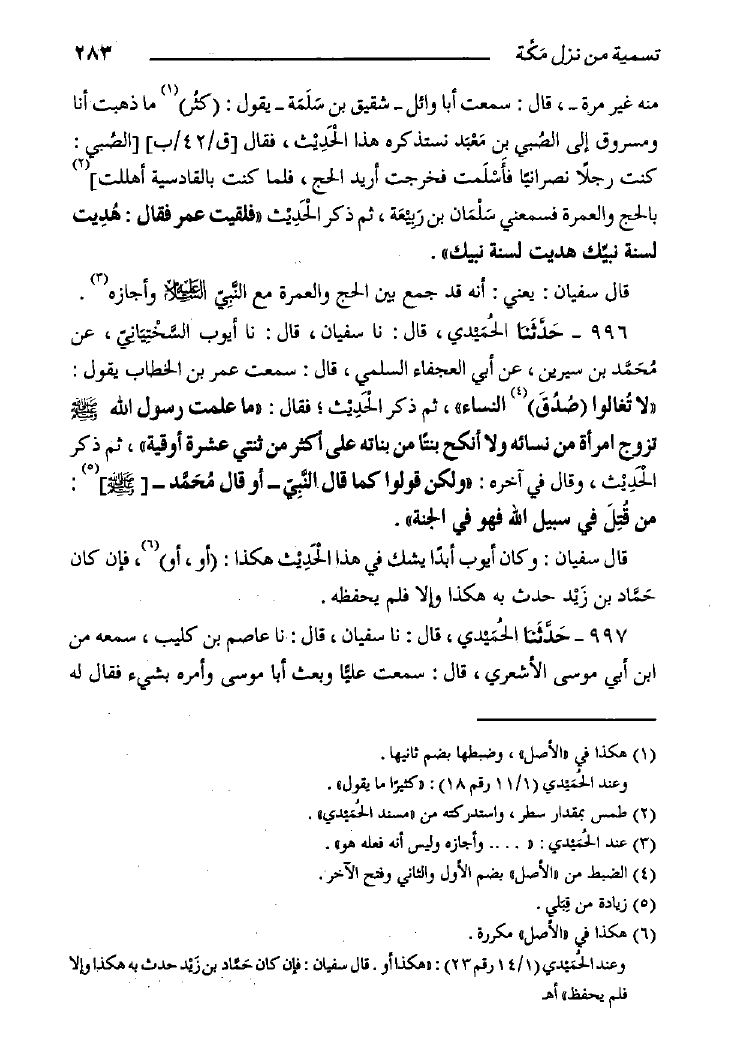 تسمية من نزل مَكَّة ٢٨٣
منه غير مرة ـ ، قال : سمعت أبا وائل ـ شقيق بن سَلَمة ـ يقول : (كثُر)(١) ما ذهبت أنا
ومسروق إلى الصُبي بن مَعْبَد نستذكره هذا الحَدِيْث ، فقال [ق/٤٢/ب] [الصُبي :
كنت رجلًا نصرانيًا فأَسْلَمت فخرجت أريد الحج ، فلما كنت بالقادسية أهللت](٢)
بالحج والعمرة فسمعني سَلْمَان بن رَبِيْعَة ، ثم ذكر الحَدِيْث «فلقيت عمر فقال : هُدِيت
لسنة نبيِّك هديت لسنة نبيك» .
قال سفيان : يعني : أنه قد جمع بين الحج والعمرة مع النَّبِيّ ﷺ وأجازه(٣) .
٩٩٦ ـ حَدَّثَنَا الحُمَيْدي ، قال : نا سفيان ، قال : نا أيوب السَّخْتِيَانِيّ ، عن
مُحَمَّد بن سيرين ، عن أبي العجفاء السلمي ، قال : سمعت عمر بن الخطاب يقول :
«لا تُغالوا (صُدُقَ)(٤) النساء» ، ثم ذكر الحَدِيْث ؛ فقال : «ما علمت رسول الله ﷺ
تزوج امرأة من نسائه ولا أنكح بنتًا من بناته على أكثر من ثنتي عشرة أوقية» ، ثم ذكر
الحَدِيْث ، وقال في آخره : «ولكن قولوا كما قال النَّبِيّ ـ أو قال مُحَمَّد ـ [ﷺ](٥) :
من قُتِلَ في سبيل الله فهو في الجنة» .
قال سفيان : وكان أيوب أبدًا يشك في هذا الحَدِيْث هكذا : (أو ، أو)(٦) ، فإن كان
حَمَّاد بن زَيْد حدث به هكذا وإلا فلم يحفظه .
٩٩٧ ـ حَدَّثَنَا الحُمَيْدي ، قال : نا سفيان ، قال : نا عاصم بن كليب ، سمعه من
ابن أبي موسى الأشعري ، قال : سمعت عليًّا وبعث أبا موسى وأمره بشيء فقال له
(١) هكذا في «الأصل» ، وضبطها بضم ثانيها .
وعند الحُمَيْدي (١١/١ رقم ١٨) : «كثيرًا ما يقول» .
(٢) طمس بمقدار سطر ، واستدركته من «مسند الحُمَيْدي» .
(٣) عند الحُمَيْدي : « .... وأجازه وليس أنه فعله هو» .
(٤) الضبط من «الأصل» بضم الأول والثاني وفتح الآخر .
(٥) زيادة من قِبَلي .
(٦) هكذا في «الأصل» مكررة .
وعند الحُمَيْدي (١٤/١ رقم ٢٣) : «هكذا أو . قال سفيان : فإن كان حَمَّاد بن زَيْد حدث به هكذا وإلا
فلم يحفظ» أهـ